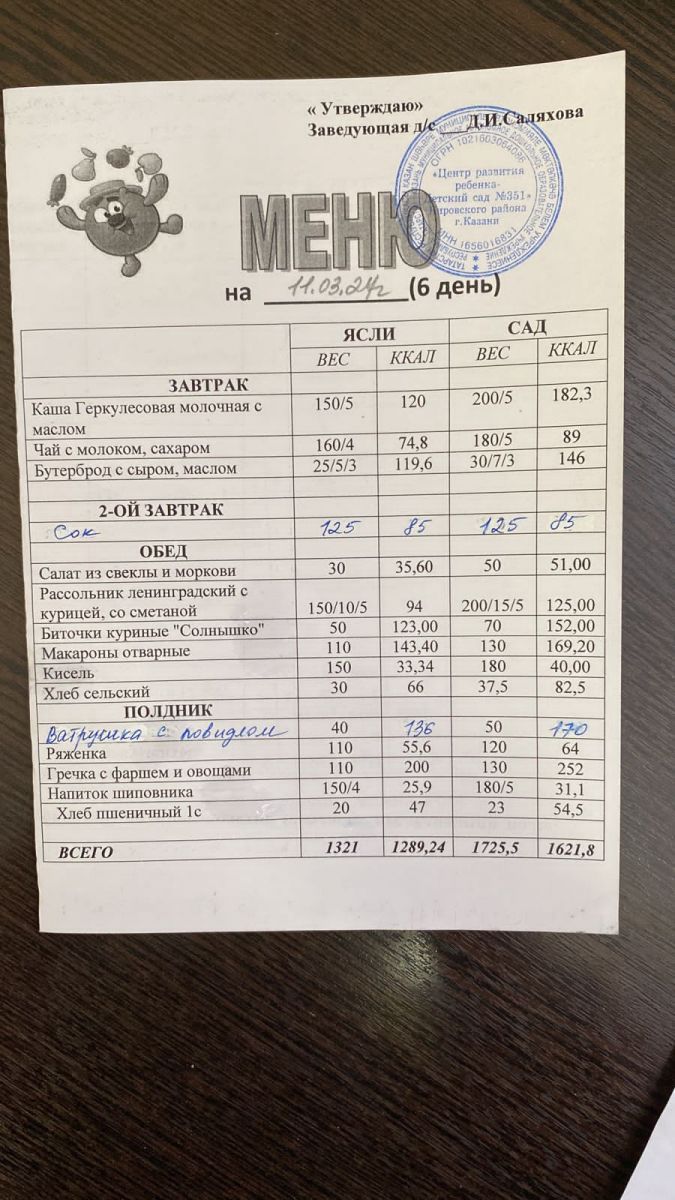 « Утверждаю»
Заведующая д/с ___Д.И.Саляхова
ОГРН 1021603064086
«Центр развития
ребенка-
детский сад №351»
Кировского района
г.Казани
ИНН 1656016831
МЕНЮ
на 11.03.24г (6 день)
ЯСЛИ САД
ВЕС ККАЛ ВЕС ККАЛ
ЗАВТРАК
Каша Геркулесовая молочная с маслом 150/5 120 200/5 182,3
Чай с молоком, сахаром 160/4 74,8 180/5 89
Бутерброд с сыром, маслом 25/5/3 119,6 30/7/3 146
2-ОЙ ЗАВТРАК
Сок 125 85 125 85
ОБЕД
Салат из свеклы и моркови 30 35,60 50 51,00
Рассольник ленинградский с курицей, со сметаной 150/10/5 94 200/15/5 125,00
Биточки куриные "Солнышко" 50 123,00 70 152,00
Макароны отварные 110 143,40 130 169,20
Кисель 150 33,34 180 40,00
Хлеб сельский 30 66 37,5 82,5
ПОЛДНИК
Ватрушка с повидлом 40 136 50 170
Ряженка 110 55,6 120 64
Гречка с фаршем и овощами 110 200 130 252
Напиток шиповника 150/4 25,9 180/5 31,1
Хлеб пшеничный 1с 20 47 23 54,5
ВСЕГО 1321 1289,24 1725,5 1621,8